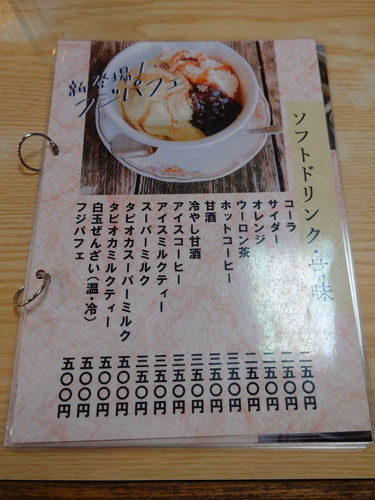 新登場！
フジパフェ
ソフトドリンク・甘味
コーラ 二五〇円
サイダー 二五〇円
オレンジ 二五〇円
ウーロン茶 二五〇円
ホットコーヒー 三五〇円
甘酒 三五〇円
冷やし甘酒 三五〇円
アイスコーヒー 三五〇円
アイスミルクティー 三五〇円
スーパーミルク 三五〇円
タピオカスーパーミルク 五〇〇円
タピオカミルクティー 五〇〇円
白玉ぜんざい（温・冷） 五〇〇円
フジパフェ 五〇〇円